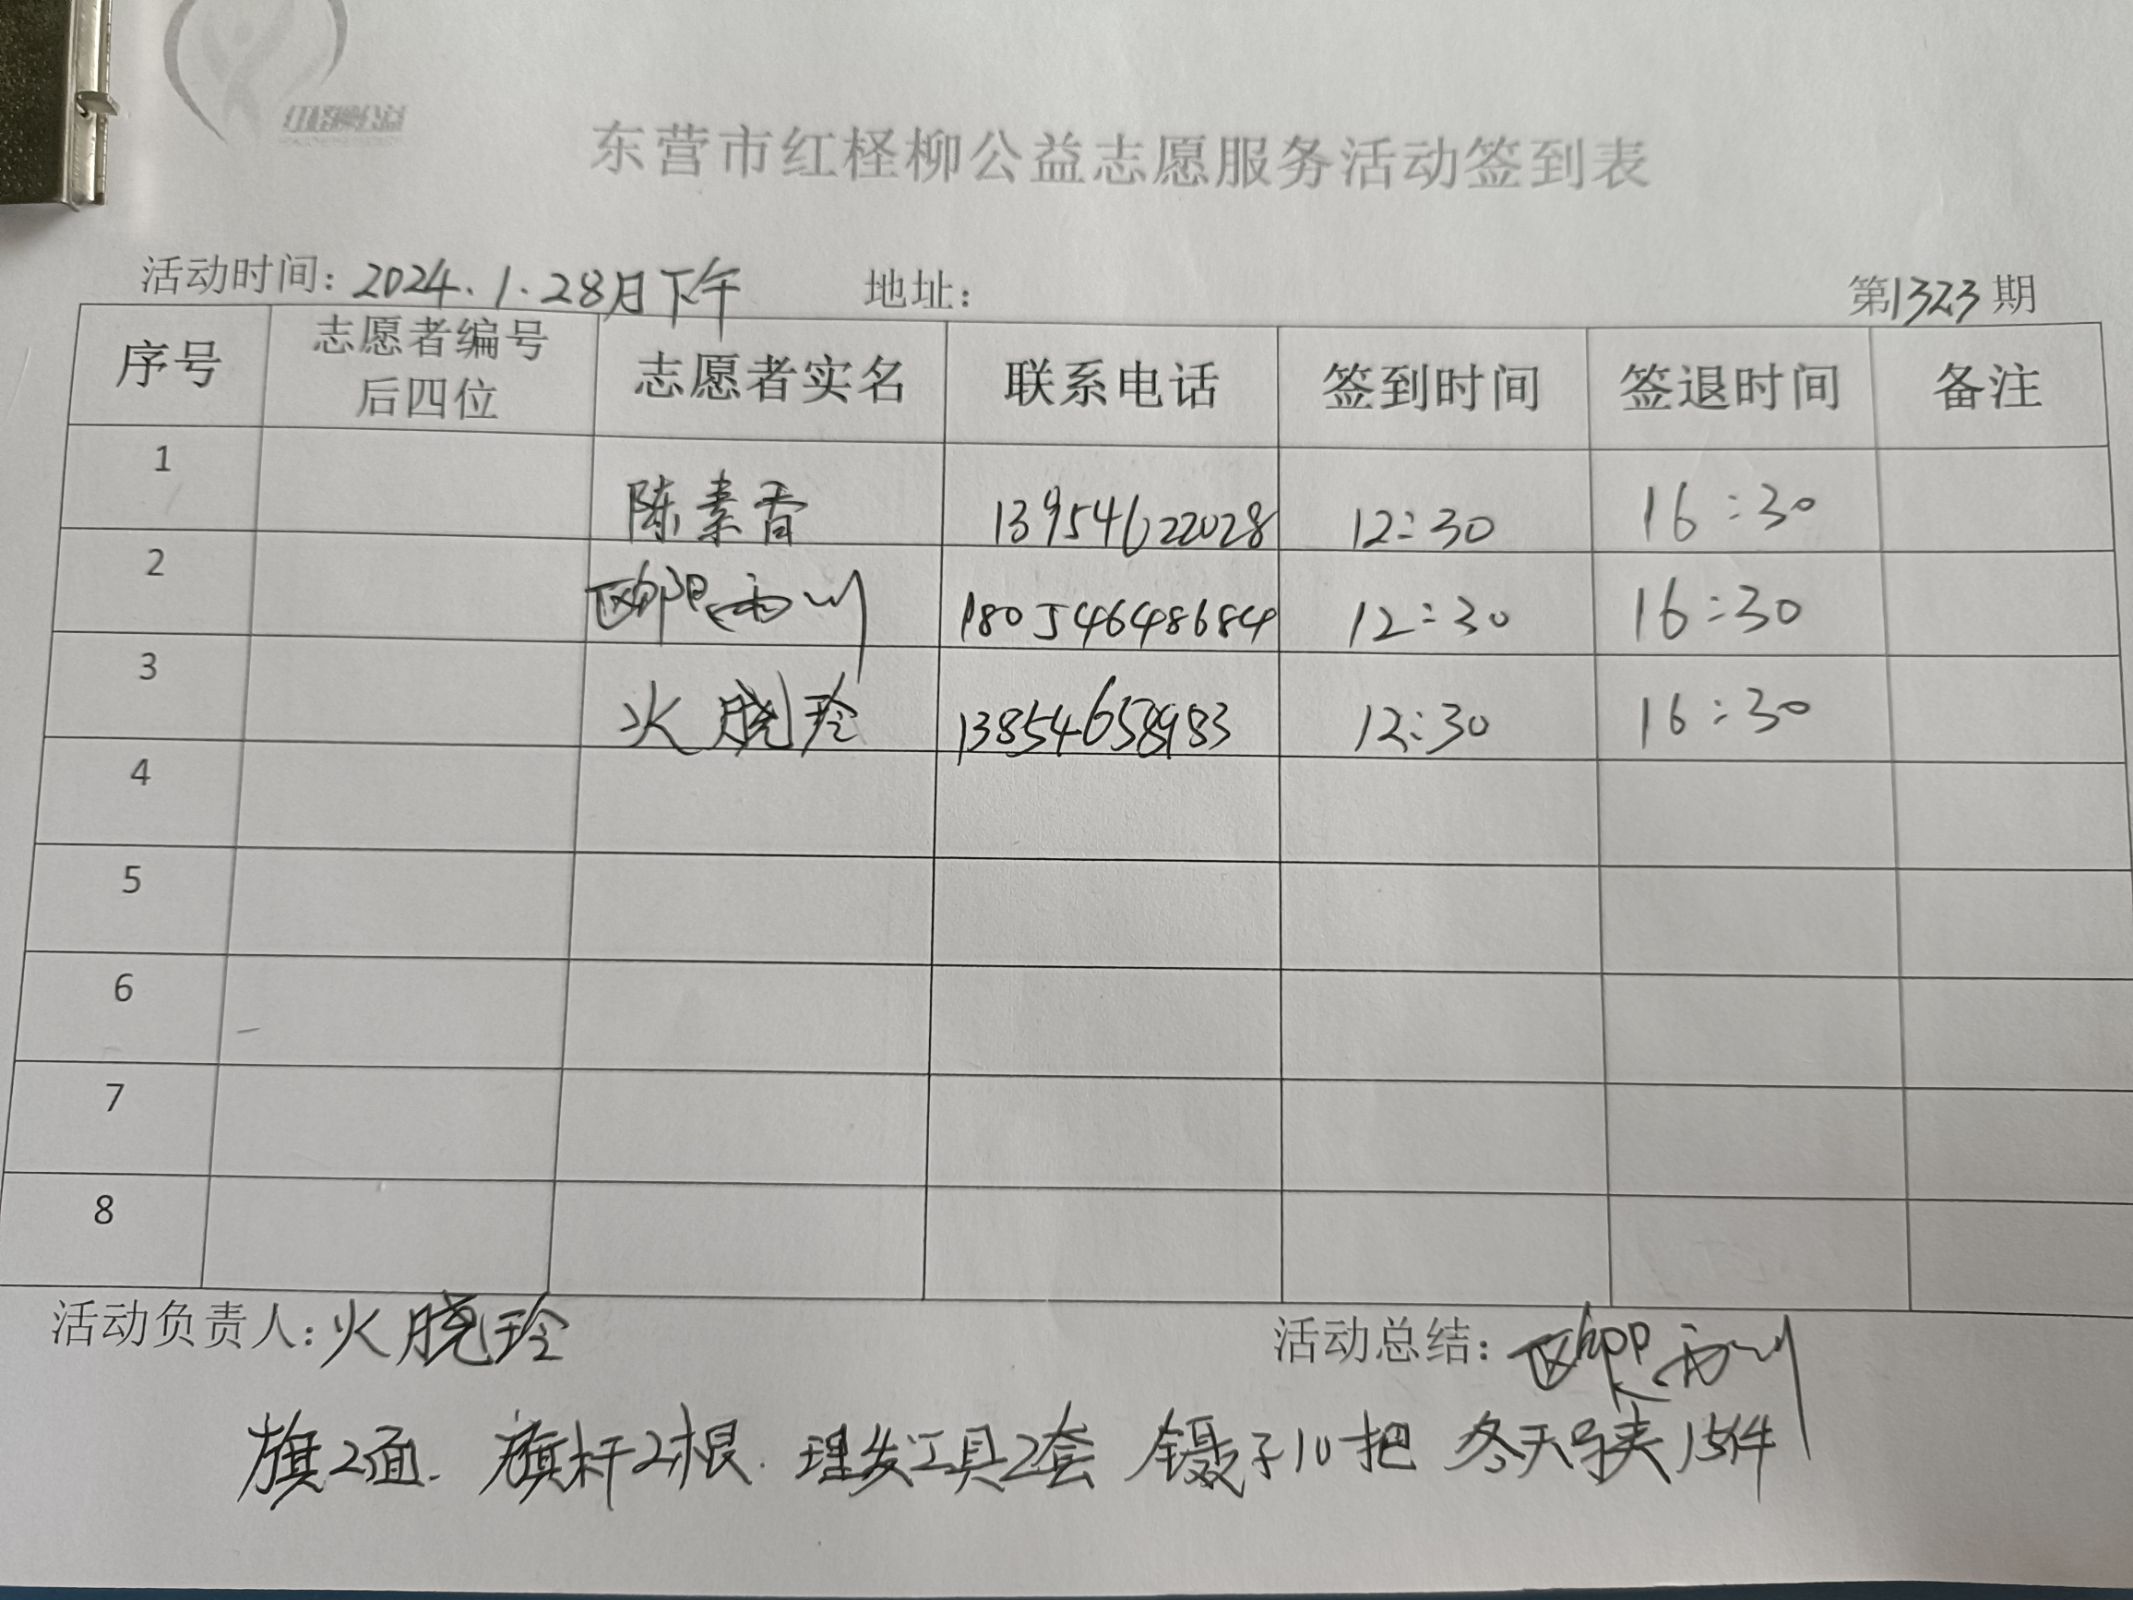 红柽柳公益
东营市红柽柳公益志愿服务活动签到表
活动时间：2024.1.28日下午 地址： 第1323期
序号 志愿者编号后四位 志愿者实名 联系电话 签到时间 签退时间 备注
1 陈素香 13954622028 12:30 16:30
2 欧阳 18054648684 12:30 16:30
3 火晓玲 13854658983 12:30 16:30
4
5
6
7
8
活动负责人：火晓玲 活动总结：欧阳
旗2面. 旗杆2根. 理发工具2套 镊子10把 冬天马夹15件